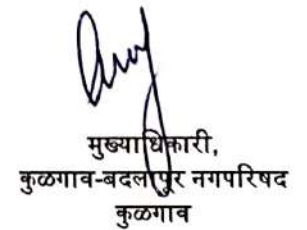 मुख्याधिकारी,
कुळगाव-बदलापूर नगपरिषद
कुळगाव